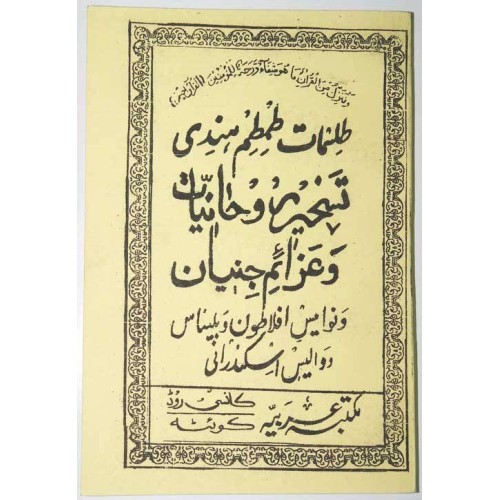 وننزل من القرآن ما هو شفاء ورحمة للمؤمنين (القرآن)
طلسمات طمطم ہندی
تسخیر روحانیات
وعزائم جنیان
ونوامیس افلاطون وبلیناس
دوالیس اسکندرانی
مکتبہ عربیہ
کانسی روڈ
کوئٹہ